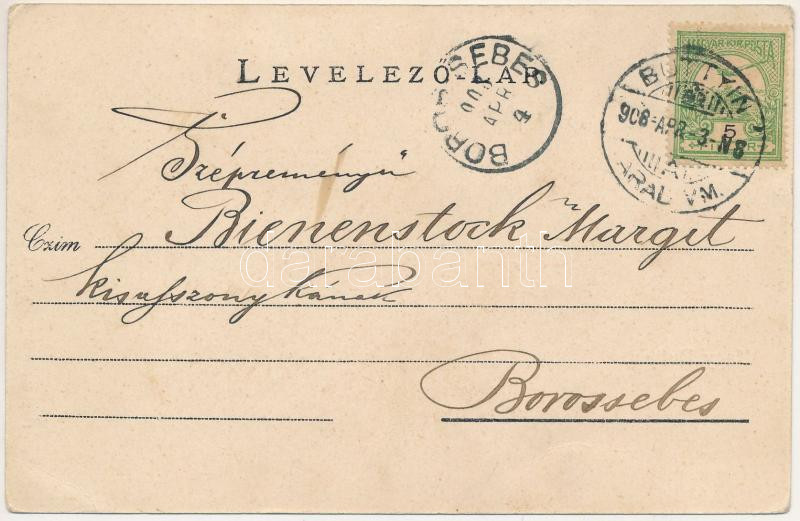 MAGYAR KIR. POSTA
5
LEVELEZŐ-LAP
BOROSSEBES
APR
4
BUTTYIN
908 APR. 3. N8
ARAD VM.
Szépreményü
Czim Bienenstock Margit
kisasszonykának
Borossebes
darabanth